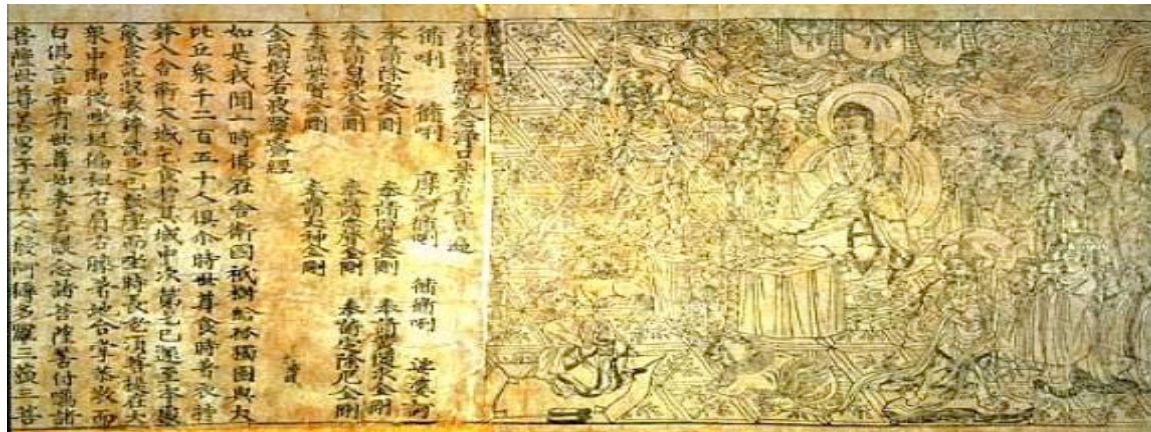 凡欲讀經先念淨口業真言一遍
脩唎 脩唎 摩訶脩唎 脩脩唎 娑婆訶
奉請除灾金剛 奉請辟毒金剛 奉請 金剛
奉請 金剛 奉請赤聲金剛 奉請定除厄金剛
奉請紫賢金剛 奉請大神金剛
金剛般若波羅蜜經
如是我聞一時佛在舍衛國祇樹給孤獨園與大
比丘衆千二百五十人俱尒時世尊食時著衣持
鉢入舍衛大城乞食於其城中次第乞已還至本處
飯食訖收衣鉢洗足已敷座而坐時長老須菩提在大
衆中即從座起偏袒右肩右膝著地合掌恭敬而
白佛言希有世尊如來善護念諸菩薩善付囑諸
菩薩世尊善男子善女人發阿耨多羅三藐三菩